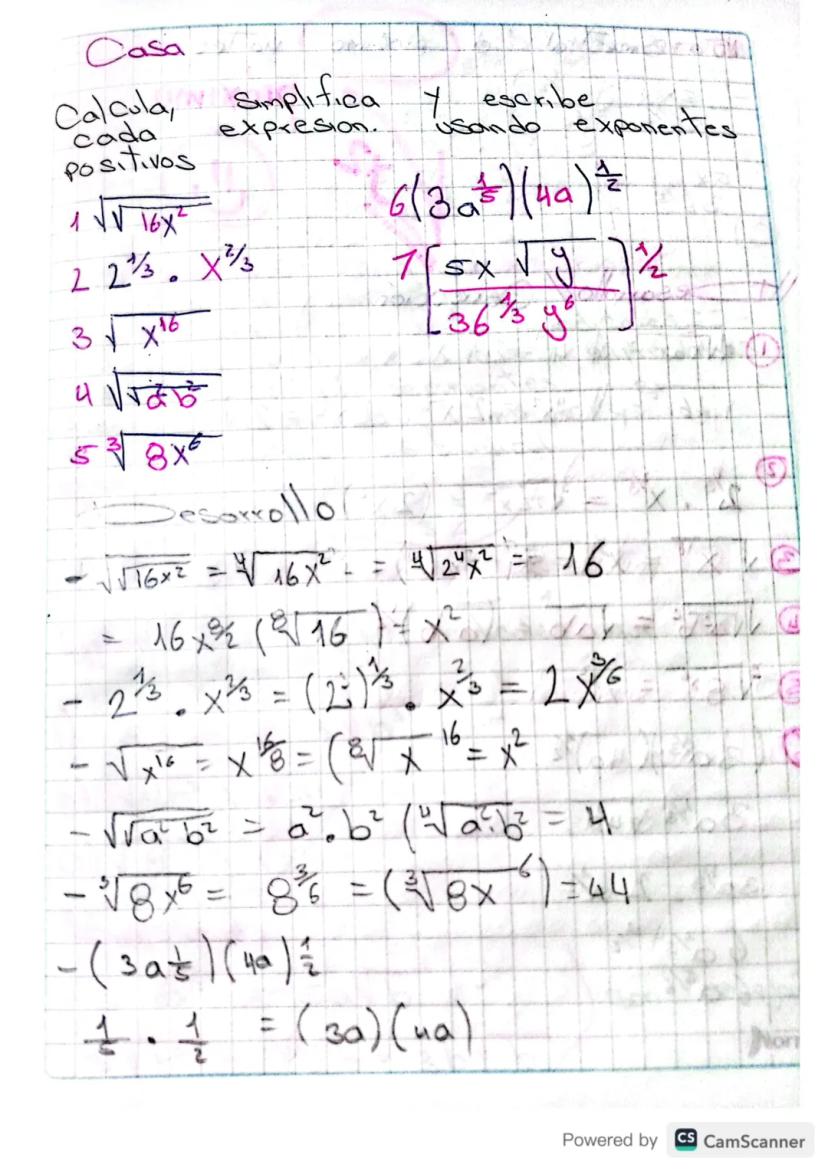 Casa
Calcula, simplifica y escribe
cada expresion. usando exponentes
positivos
1 √√16x²
2 2^1/3 . x^2/3
3 √x^16
4 √√a²b²
5 ³√8x⁶
6 (3a^1/5)(4a)^1/2
7 [5x √y / 36^1/3 y⁶]^1/2
Desarrollo
- √√16x² = ⁴√16x² = ⁴√2⁴x² = 16
= 16x^8/2 (⁸√16) = x²
- 2^1/3 . x^2/3 = (2)^1/3 . x^2/3 = 2x^3/6
- √x^16 = x^16/8 = (⁸√x ^16 = x²
- √√a² b² = a² . b² (⁴√a².b² = 4
- ³√8x⁶ = 8^3/6 = (³√8x ⁶) = 44
- (3a 1/5)(4a)^1/2
1/5 . 1/2 = (3a)(4a)
Norm
Powered by CS CamScanner